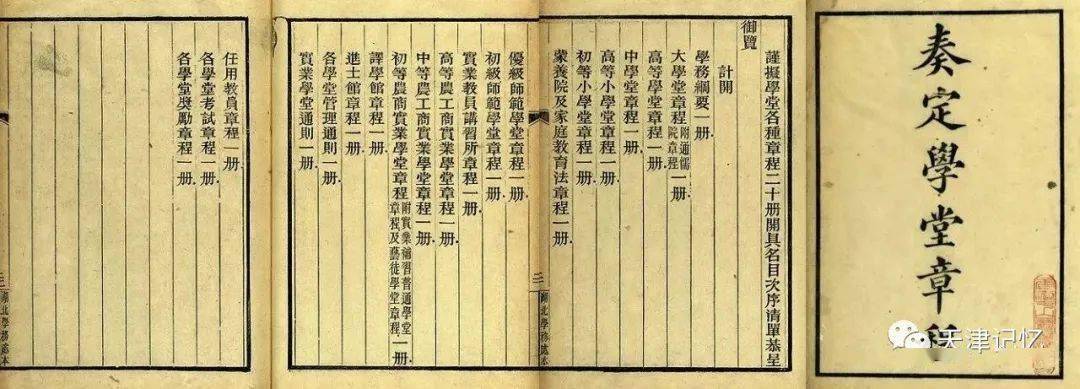 奏定學堂章程
謹擬學堂各種章程二十冊開具名目次序清單恭呈
御覽
計開
學務綱要一册
大學堂章程附通儒院章程一册
高等學堂章程一册
中學堂章程一册
高等小學堂章程一册
初等小學堂章程一册
蒙養院及家庭教育法章程一册
二
湖北學務處本
優級師範學堂章程一册
初級師範學堂章程一册
實業教員講習所章程一册
高等農工商實業學堂章程一册
中等農工商實業學堂章程一册
初等農商實業學堂章程附實業補習普通學堂章程及藝徒學堂章程一册
譯學館章程一册
進士館章程一册
各學堂管理通則一册
實業學堂通則一册
任用教員章程一册
各學堂考試章程一册
各學堂獎勵章程一册
三
湖北學務處本
天津记忆